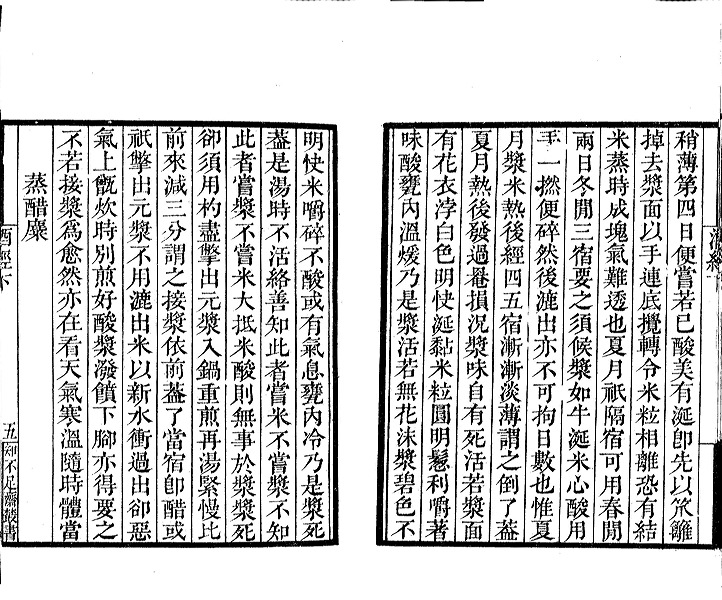 稍薄第四日便嘗若已酸美有涎卽先以笊篱
掉去漿面以手連底攪轉令米粒相離恐有結
米蒸時成塊氣難透也夏月祇隔宿可用春閒
兩日冬閒三宿要之須候漿如牛涎米心酸用
手一撚便碎然後漉出亦不可拘日數也惟夏
月漿米熱後經四五宿漸漸淡薄謂之倒了葢
夏月熱後發過罨損況漿味自有死活若漿面
有花衣浡白色明快涎黏米粒圓明鬆利嚼著
味酸甕內溫煖乃是漿活若無花沫漿碧色不
明快米嚼碎不酸或有氣息甕內冷乃是漿死
葢是湯時不活絡善知此者嘗米不嘗漿不知
此者嘗漿不嘗米大抵米酸則無事於漿漿死
卻須用杓盡擎出元漿入鍋重煎再湯緊慢比
前來減三分謂之接漿依前葢了當宿卽醋或
祇擎出元漿不用漉出米以新水衝過出卻惡
氣上甑炊時別煎好酸漿潑饙下腳亦得要之
不若接漿爲愈然亦在看天氣寒溫隨時體當
蒸醋麋
酒經下
五
知不足齋叢書